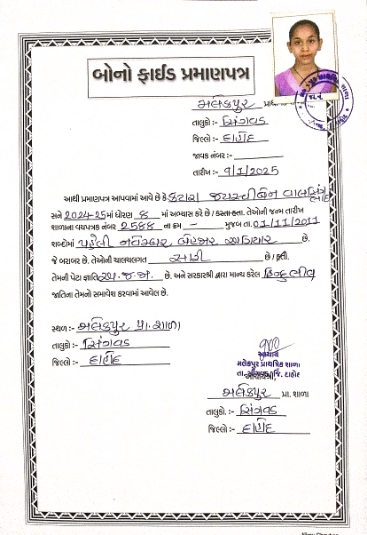 બોનો ફાઈડ પ્રમાણપત્ર
મલેકપુર પ્રા
તાલુકો :- સિંગવડ
જિલ્લો :- દાહોદ
જાવક નંબર :-
તારીખ :- 9/1/2025
આથી પ્રમાણપત્ર આપવામાં આવે છે કે કટારા
સને 2024-25 માં ધોરણ 8 માં અભ્યાસ કરે છે / કરતા હતા. તેઓની જન્મ તારીખ
શાળાના વયપત્રક નંબર 2588 ના ક્રમ – મુજબ તા. 01/11/2011
શબ્દોમાં પહેલી નવેમ્બર બેહજાર અગિયાર છે.
જે બરાબર છે. તેઓની ચાલચલગત સારી છે / હતી.
તેમની પેટા જ્ઞાતિ અ.જ.જા. છે. અને સરકારશ્રી દ્વારા માન્ય કરેલ હિન્દુ ભીલ
જાતિના તેમનો સમાવેશ કરવામાં આવેલ છે.
સ્થળ :- મલેકપુર પ્રા. શાળા
તાલુકો :- સિંગવડ
જિલ્લો :- દાહોદ
આચાર્ય
મલેકપુર પ્રાથમિક શાળા
તા. જિ. દાહોદ
મલેકપુર પ્રા. શાળા
તાલુકો. :- સિંગવડ
જિલ્લો :- દાહોદ